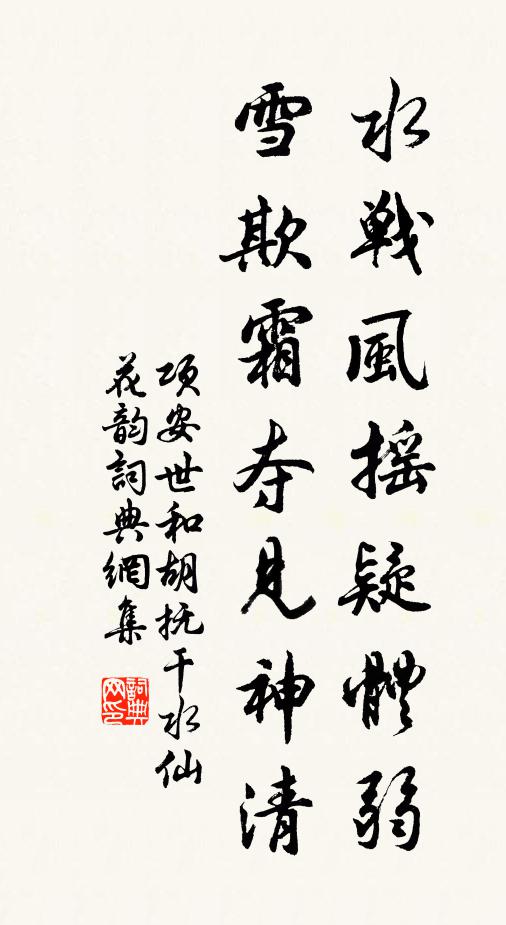 水戰風摇疑體弱
雪欺霜夺見神清
项安世和胡抚干水仙
花韵詞典網集
詞典
网印